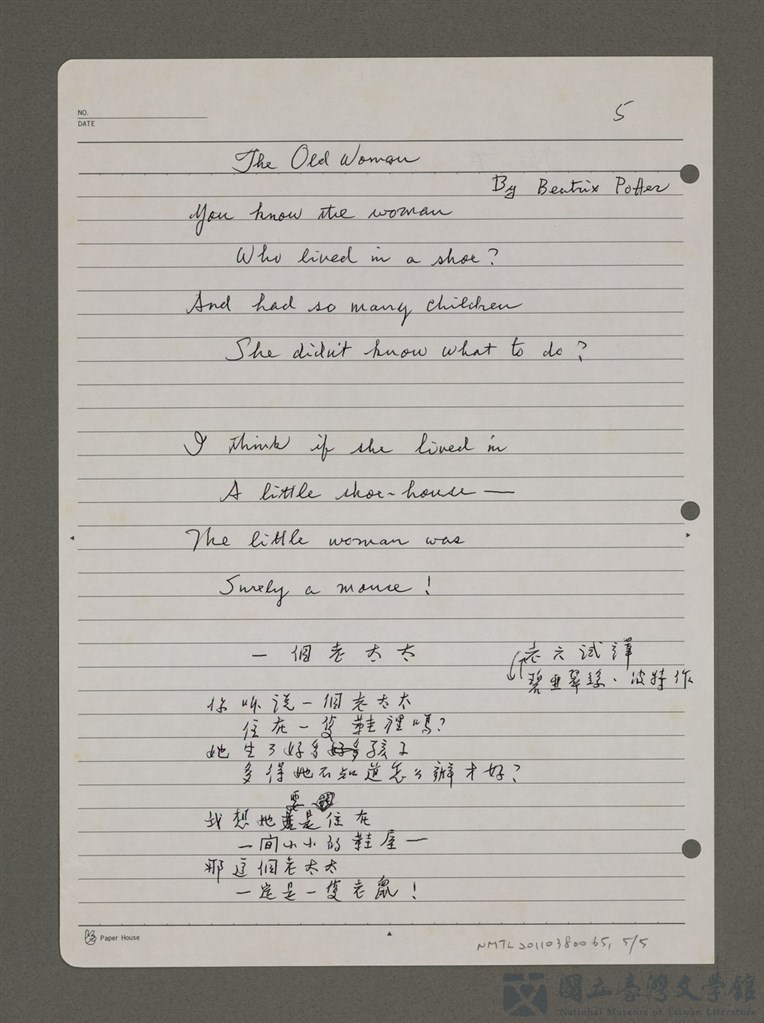 NO.
DATE
5
The Old Woman
By Beatrix Potter
You know the woman
Who lived in a shoe?
And had so many children
She didn't know what to do?
I think if she lived in
A little shoe-house —
The little woman was
Surely a mouse!
一個老太太
老六試譯
碧亚翠絲·波特作
你听説一個老太太
住在一隻鞋裡嗎?
她生了好多好多孩子
多得她不知道怎么辦才好?
我想她要是住在
一间小小的鞋屋一
那這個老太太
一定是一隻老鼠!
Paper House
NMTL20110380065, 5/5
國立臺灣文學館
National Museum of Taiwan Literature